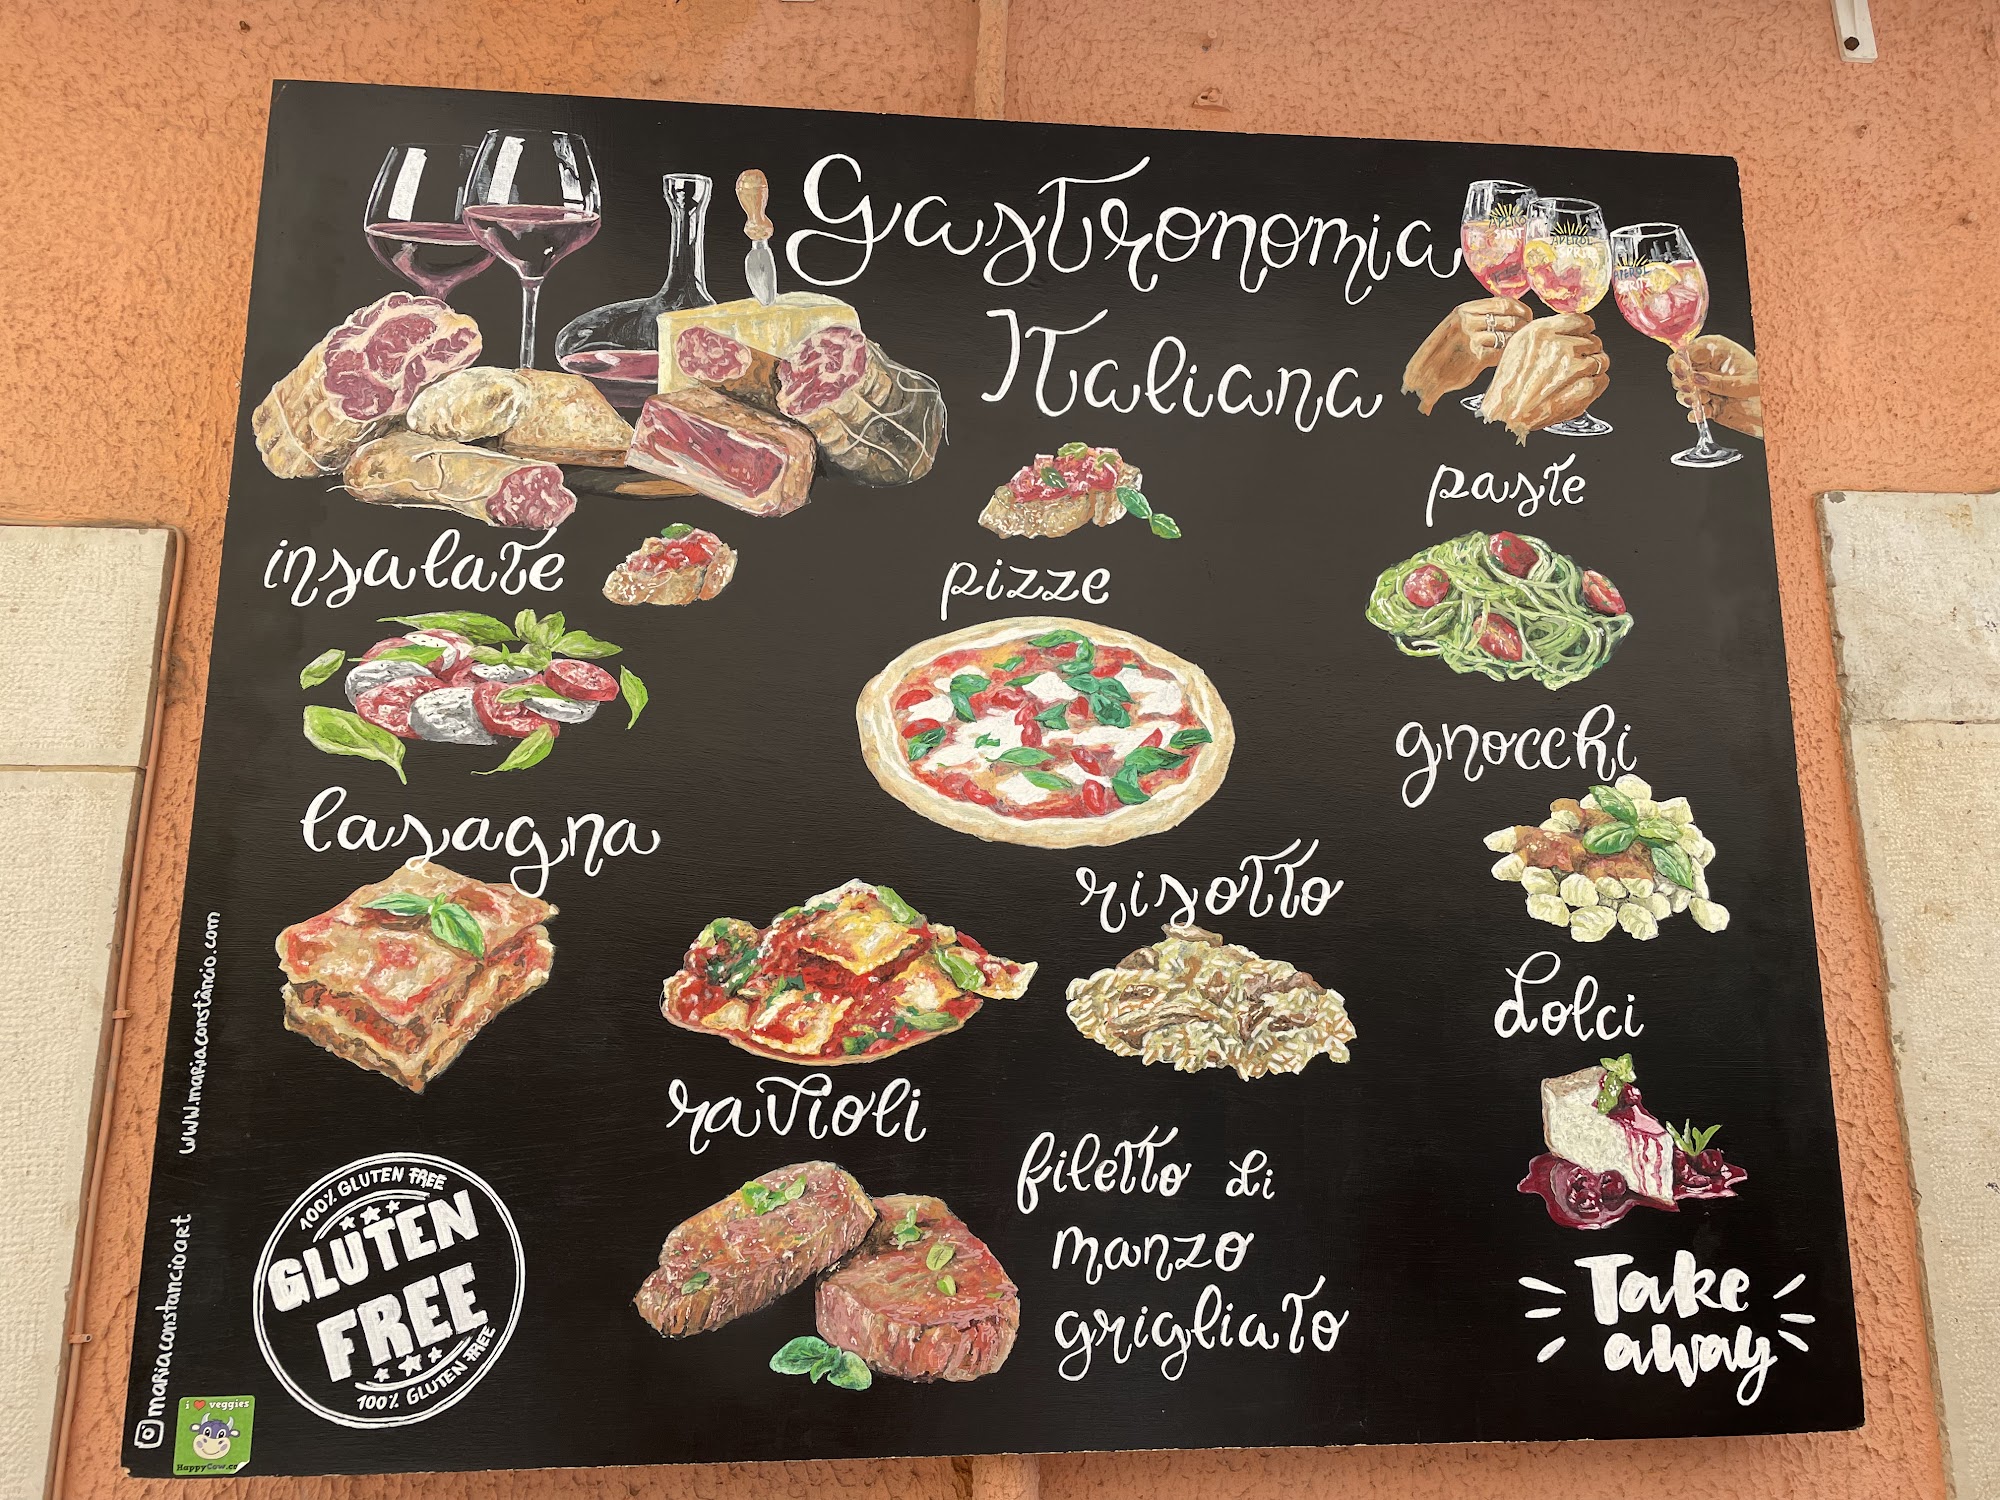 Gastronomia
Italiana
APEROL
SPRITZ
APEROL
SPRITZ
paste
insalate
pizze
gnocchi
lasagna
risotto
dolci
ravioli
filetto di
manzo
grigliato
Take
away
100% GLUTEN FREE
GLUTEN
FREE
100% GLUTEN FREE
www.mariaconstâncio.com
mariaconstancioart
i ❤ veggies
HappyCow.co